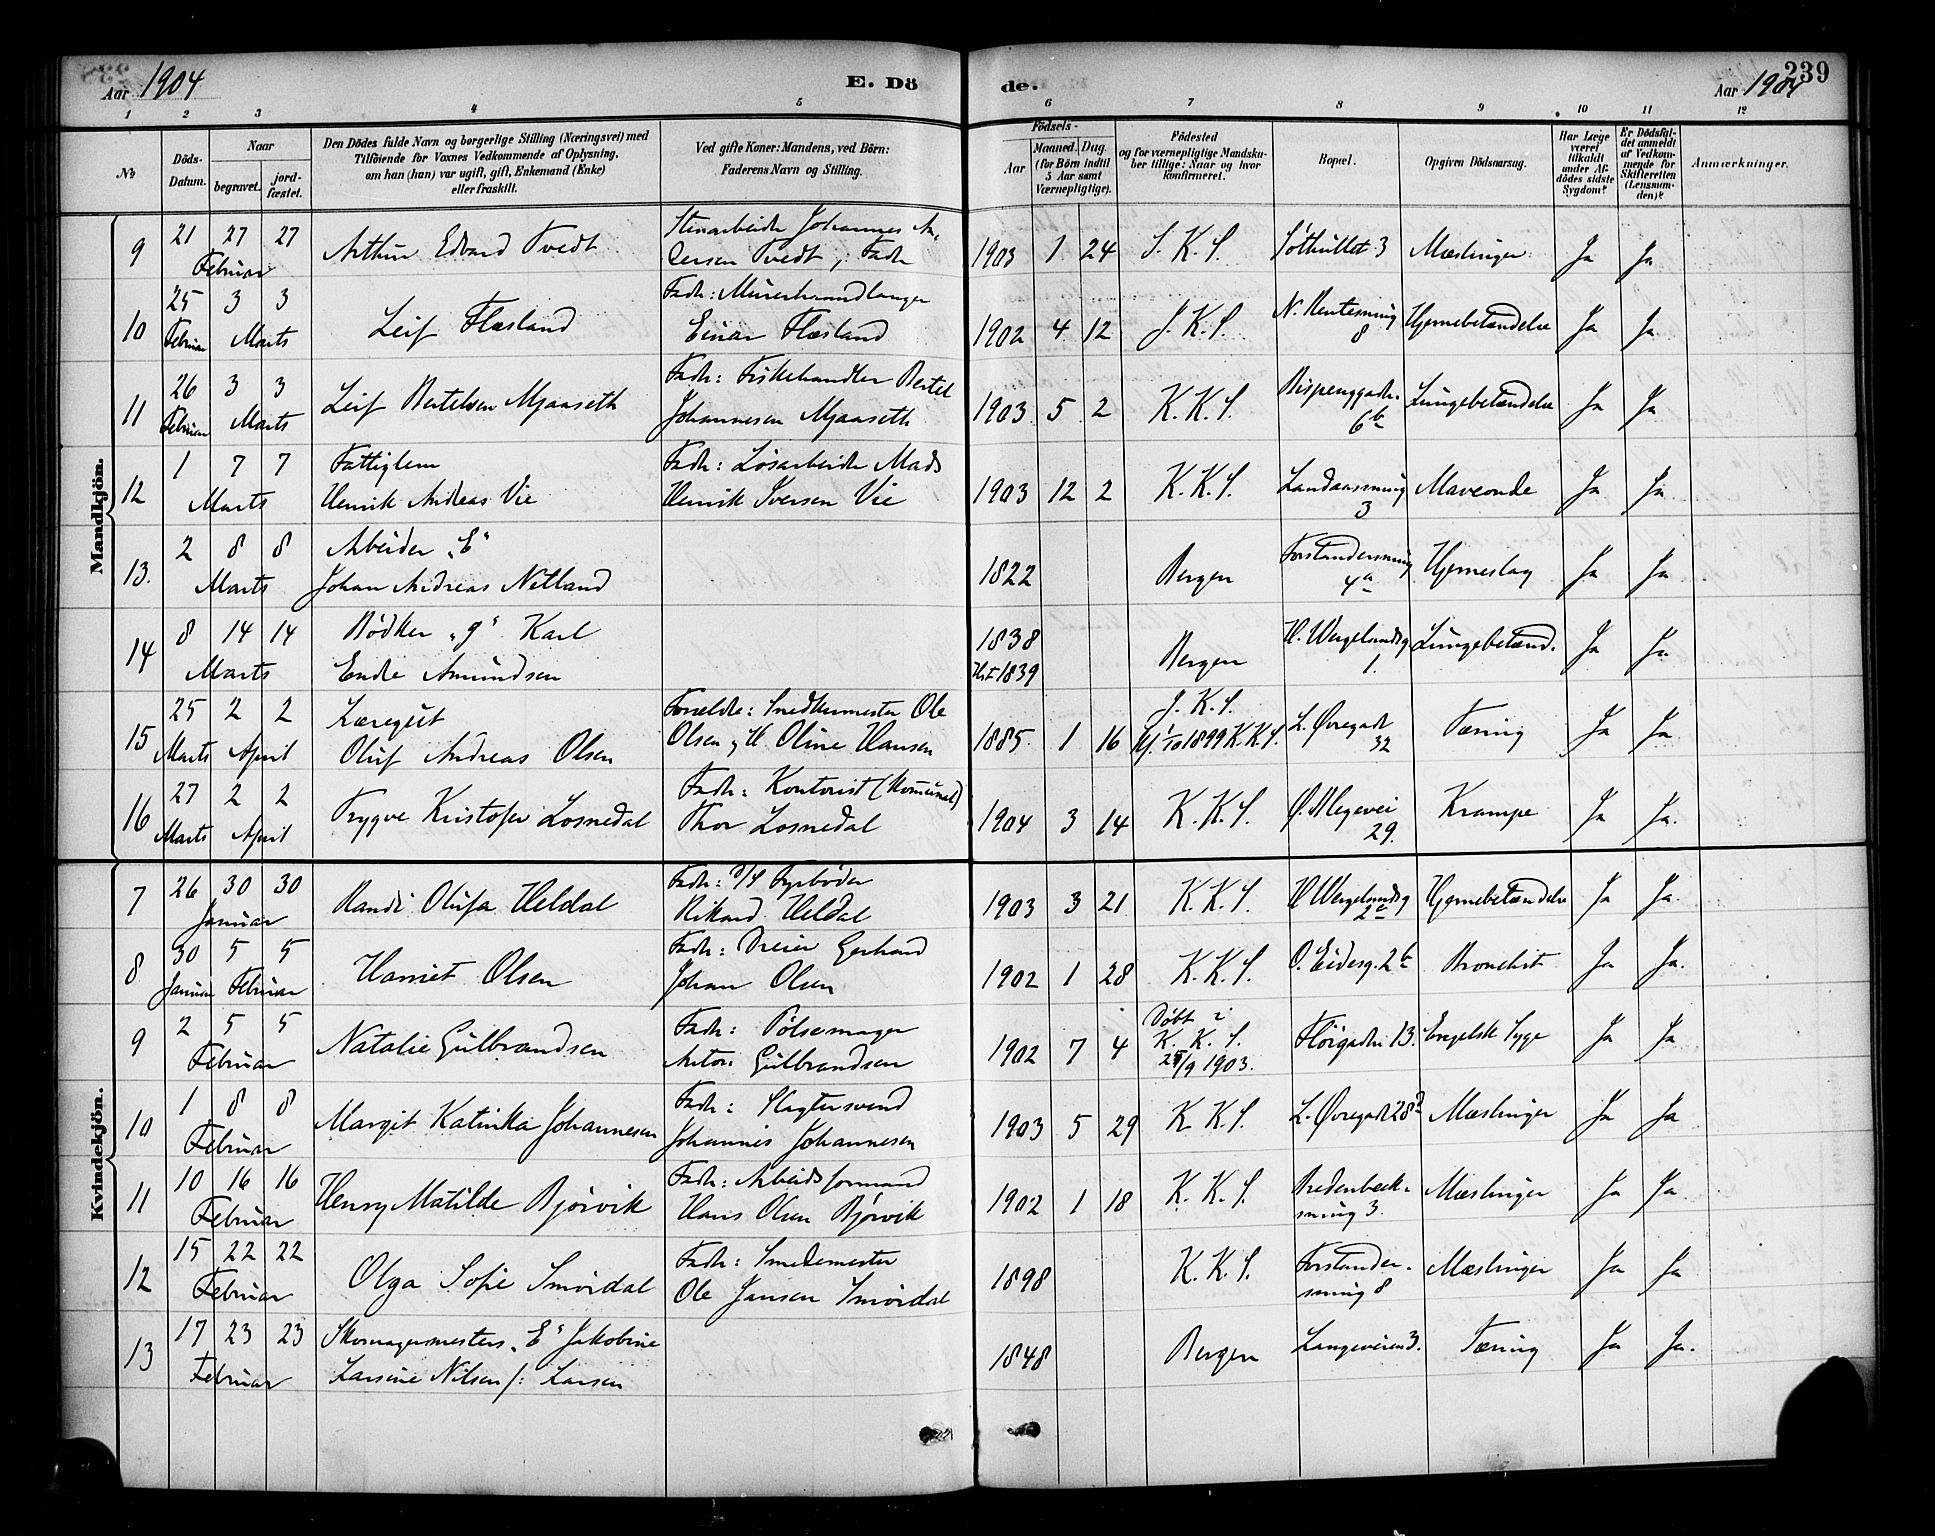 Aar 1904
E. Dö
de.
239
Aar 1904
1 2 3 4 5 6 7 8 9 10 11 12
No
Döds-Datum.
Naar
begravet.
jord-fæstet.
Den Dödes fulde Navn og borgerlige Stilling (Næringsvei) med
Tilföiende for Voxnes Vedkommende af Oplysning,
om han (hun) var ugift, gift, Enkemand (Enke)
eller fraskilt.
Ved gifte Koner: Mandens, ved Börn:
Faderens Navn og Stilling.
Födsels-
Aar
Maaned. Dag.
(for Börn indtil
5 Aar samt
Værnepligtige).
Födested
og for værnepligtige Mandsku-
ber tillige: Naar og hvor
konfirmeret.
Bopæl.
Opgiven Dödsaarsag.
Har Læge
været
tilkaldt
under Af-
dödes sidste
Sygdom?
Er Dödsfal-
det anmeldt
af Vedkom-
mende for
Skifteretten
(Lensman-
den)?
Anmærkninger.
Mandkjön.
9 21 27 27 Februar Arthur Edvard Tvedt Stenarbeider Johannes An-
dersen Tvedt, Fader 1903 1 24 J. K. S. Søthullet 3 Mæslinger Ja Ja
10 25 Februar 3 3 Marts Leif Flæsland Fader: Murerhaandlanger
Einar Flæsland 1902 4 12 J. K. S. N. Rentesmug 8 Hjernebetændelse Ja Ja
11 26 Februar 3 3 Marts Leif Bertelsen Mjaaseth Fader: Fiskehandler Bertel
Johannesen Mjaaseth 1903 5 2 K. K. S. Bispenggaden 6b Lungebetændelse Ja Ja
12 1 7 7 Marts Fattiglem
Henrik Andreas Vie Fader: Løsarbeider Mads
Henrik Iversen Vie 1903 12 2 K. K. S. Landaassmug 3 Maveonde Ja Ja
13. 2 8 8 Marts Arbeider "E"
Johan Andreas Netland 1822 Bergen Forstandersmug 4a Hjerneslag Ja Ja
14 8 14 14 Marts Bødker "g" Karl
Endre Amundsen 1838
1839 Bergen H. Wergelandsg 1. Lungebetænd. Ja Ja
15 25 Marts 2 2 April Læregut
Oluf Andreas Olsen Forældre: Snedkermester Ole
Olsen, H. Oline Hansen 1885 1 16 J. K. S.
1/10 1899 K. K. S. L. Øvregade 32 Tæring Ja Ja
16 27 Marts 2 2 April Trygve Kristofer Losnedal Fader: Kontorist (Komunal)
Thor Losnedal 1904 3 14 K. K. S. Ø. Blegevei 29. Krampe Ja Ja.
Kvindekjön.
7 26 30 30 Januar Randi Olufa Heldal Fader: D/S Fyrbøder
Rikard Heldal 1903 3 21 K. K. S. H Wergelandsg 2c Hjernebetændelse Ja Ja.
8 30 Januar 5 5 Februar Harriet Olsen Fader: Dreier Gerhard
Johan Olsen 1902 1 28 K. K. S. O. Eidesg. 2b Bronchit Ja Ja.
9 2 5 5 Februar Natalie Gulbrandsen Fader: Pølsemager
Anton Gulbrandsen 1902 7 4 Døbt i
K. K. S.
25/9 1903. Fløigaden 13. Engelsk Syge Ja Ja
10 1 8 8 Februar Margit Katinka Johannesen Fader: Slagtersvend
Johannes Johannesen 1903 5 29 K K. S. L. Øvregade 28 Mæslinger Ja Ja
11 10 16 16 Februar Henny Matilde Bjørvik Fader: Arbeidsformand
Hans Olsen Bjørvik 1902 1 18 K. K. S. Bredenbeck-
smug 3. Mæslinger Ja Ja.
12 15 22 22 Februar Olga Sofie Smørdal Fader: Smedemester
Ole Jansen Smørdal 1898 K. K. S. Forstander-
smug 8 Mæslinger Ja Ja
13 17 23 23 Februar Skomagermesters "E" Jakobine
Larsine Nilsen f: Larsen 1848 Bergen Langeveien 3. Tæring Ja Ja.